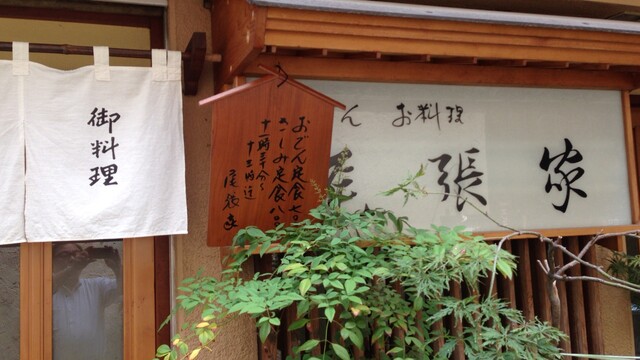 御料理
おでん定食七〇
さしみ定食八〇
十一時三十分〜
十三時迄
尾張家
ん お料理
尾張家